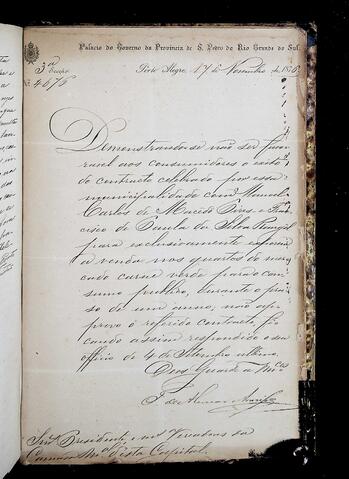 Palacio do Governo da Provincia de S. Pedro do Rio Grande do Sul
3ª Secção
Porto Alegre, 17 de Novembro de 1876
N. 4676
Demonstrando-se não ser favo-
ravel aos consumidores o exito
do contracto celebrado por essa
municipalidade com Manuel
Carlos de Macedo Pires e Fran-
cisco de Paula da Silva Rangel
para exclusivamente exporem
a venda nos quartos do mer-
cado carne verde para o con-
sumo publico, durante o pra-
so de um anno, não ap-
provo o referido contracto, fi-
cando assim respondido o seu
officio de 4 de Setembro ultimo.
Deus Guarde a Vmcas
Snrs Presidente e mais Vereadores da
Camara Mal desta Capital.